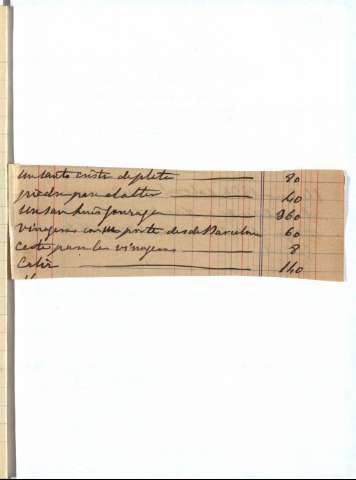 un santo cristo de plata 80
piedra para el altar 40
un san 360
vinageras con porte desde Barcelona 60
cesto para las vinageras 8
Caliz 140